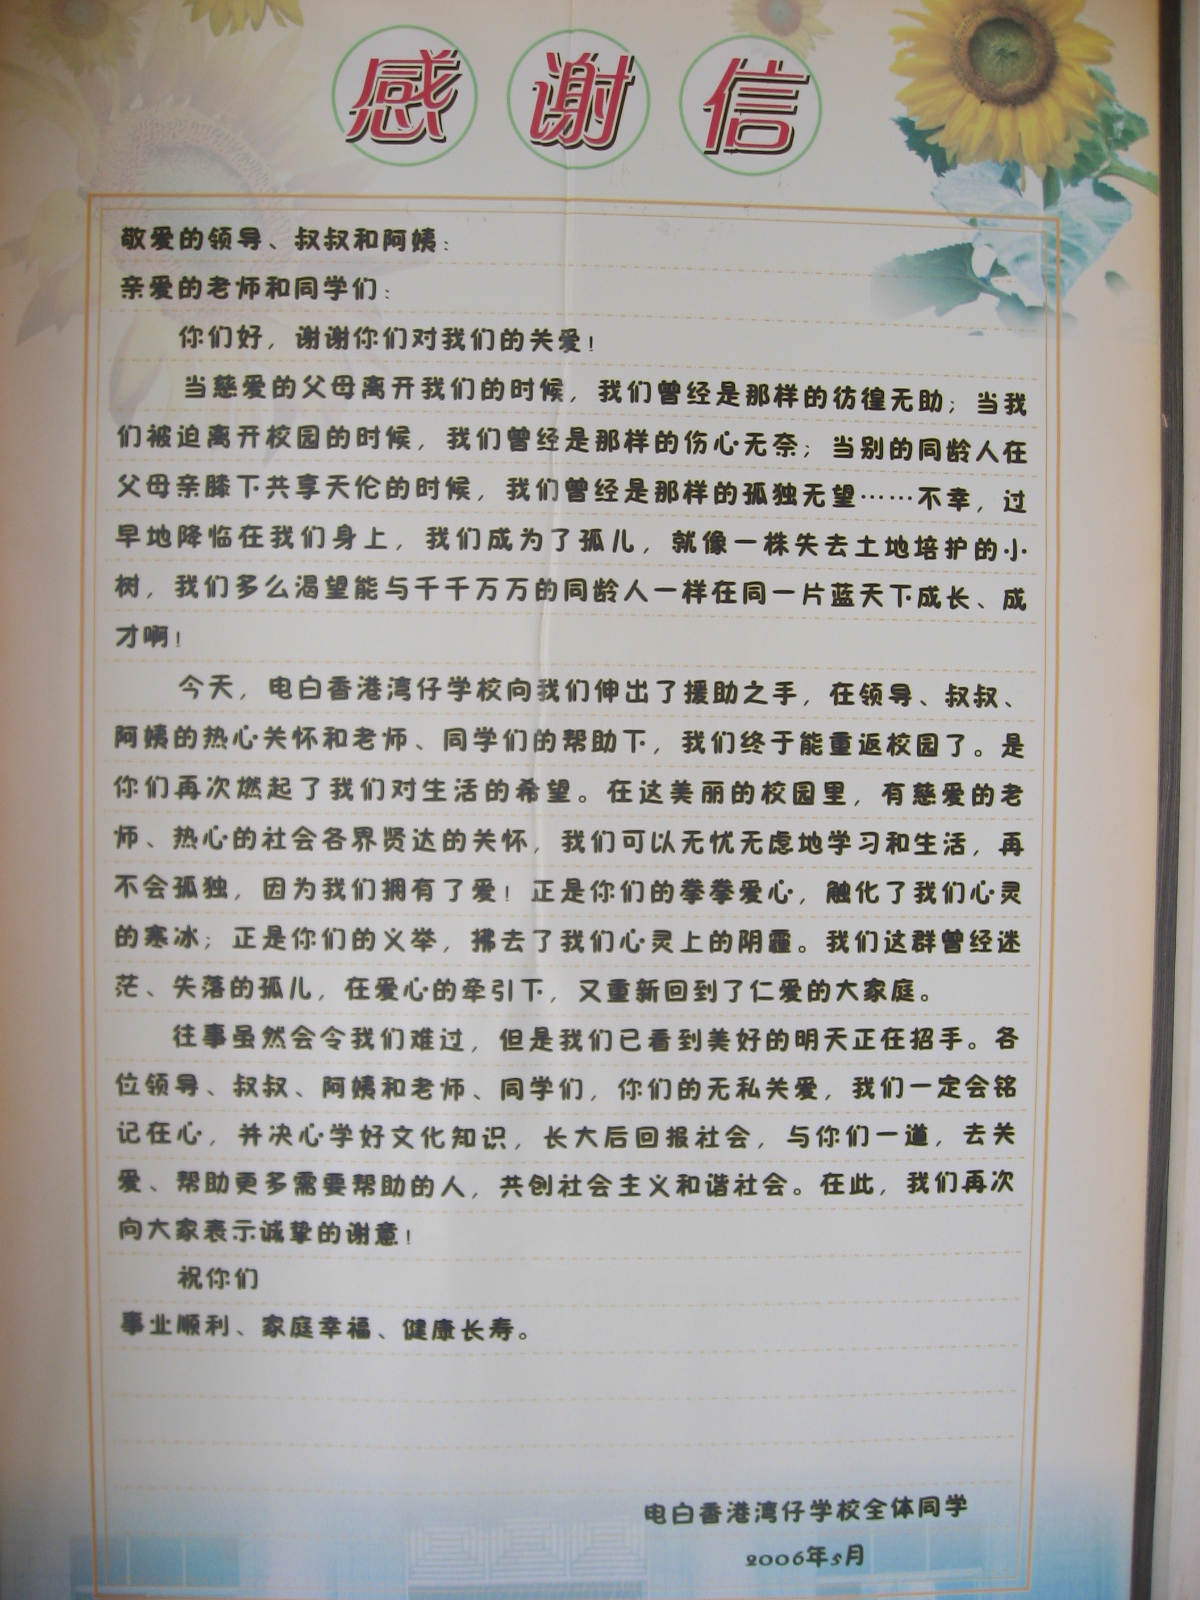 感谢信
敬爱的领导、叔叔和阿姨：
亲爱的老师和同学们：
你们好，谢谢你们对我们的关爱！
当慈爱的父母离开我们的时候，我们曾经是那样的彷徨无助；当我
们被迫离开校园的时候，我们曾经是那样的伤心无奈；当别的同龄人在
父母亲膝下共享天伦的时候，我们曾经是那样的孤独无望……不幸，过
早地降临在我们身上，我们成为了孤儿，就像一株失去土地培护的小
树，我们多么渴望能与千千万万的同龄人一样在同一片蓝天下成长、成
才啊！
今天，电白香港湾仔学校向我们伸出了援助之手，在领导、叔叔、
阿姨的热心关怀和老师、同学们的帮助下，我们终于能重返校园了。是
你们再次燃起了我们对生活的希望。在这美丽的校园里，有慈爱的老
师、热心的社会各界贤达的关怀，我们可以无忧无虑地学习和生活，再
不会孤独，因为我们拥有了爱！正是你们的拳拳爱心，触化了我们心灵
的寒冰；正是你们的义举，拂去了我们心灵上的阴霾。我们这群曾经迷
茫、失落的孤儿，在爱心的牵引下，又重新回到了仁爱的大家庭。
往事虽然会令我们难过，但是我们已看到美好的明天正在招手。各
位领导、叔叔、阿姨和老师、同学们，你们的无私关爱，我们一定会铭
记在心，并决心学好文化知识，长大后回报社会，与你们一道，去关
爱、帮助更多需要帮助的人，共创社会主义和谐社会。在此，我们再次
向大家表示诚挚的谢意！
祝你们
事业顺利、家庭幸福、健康长寿。
电白香港湾仔学校全体同学
2006年5月